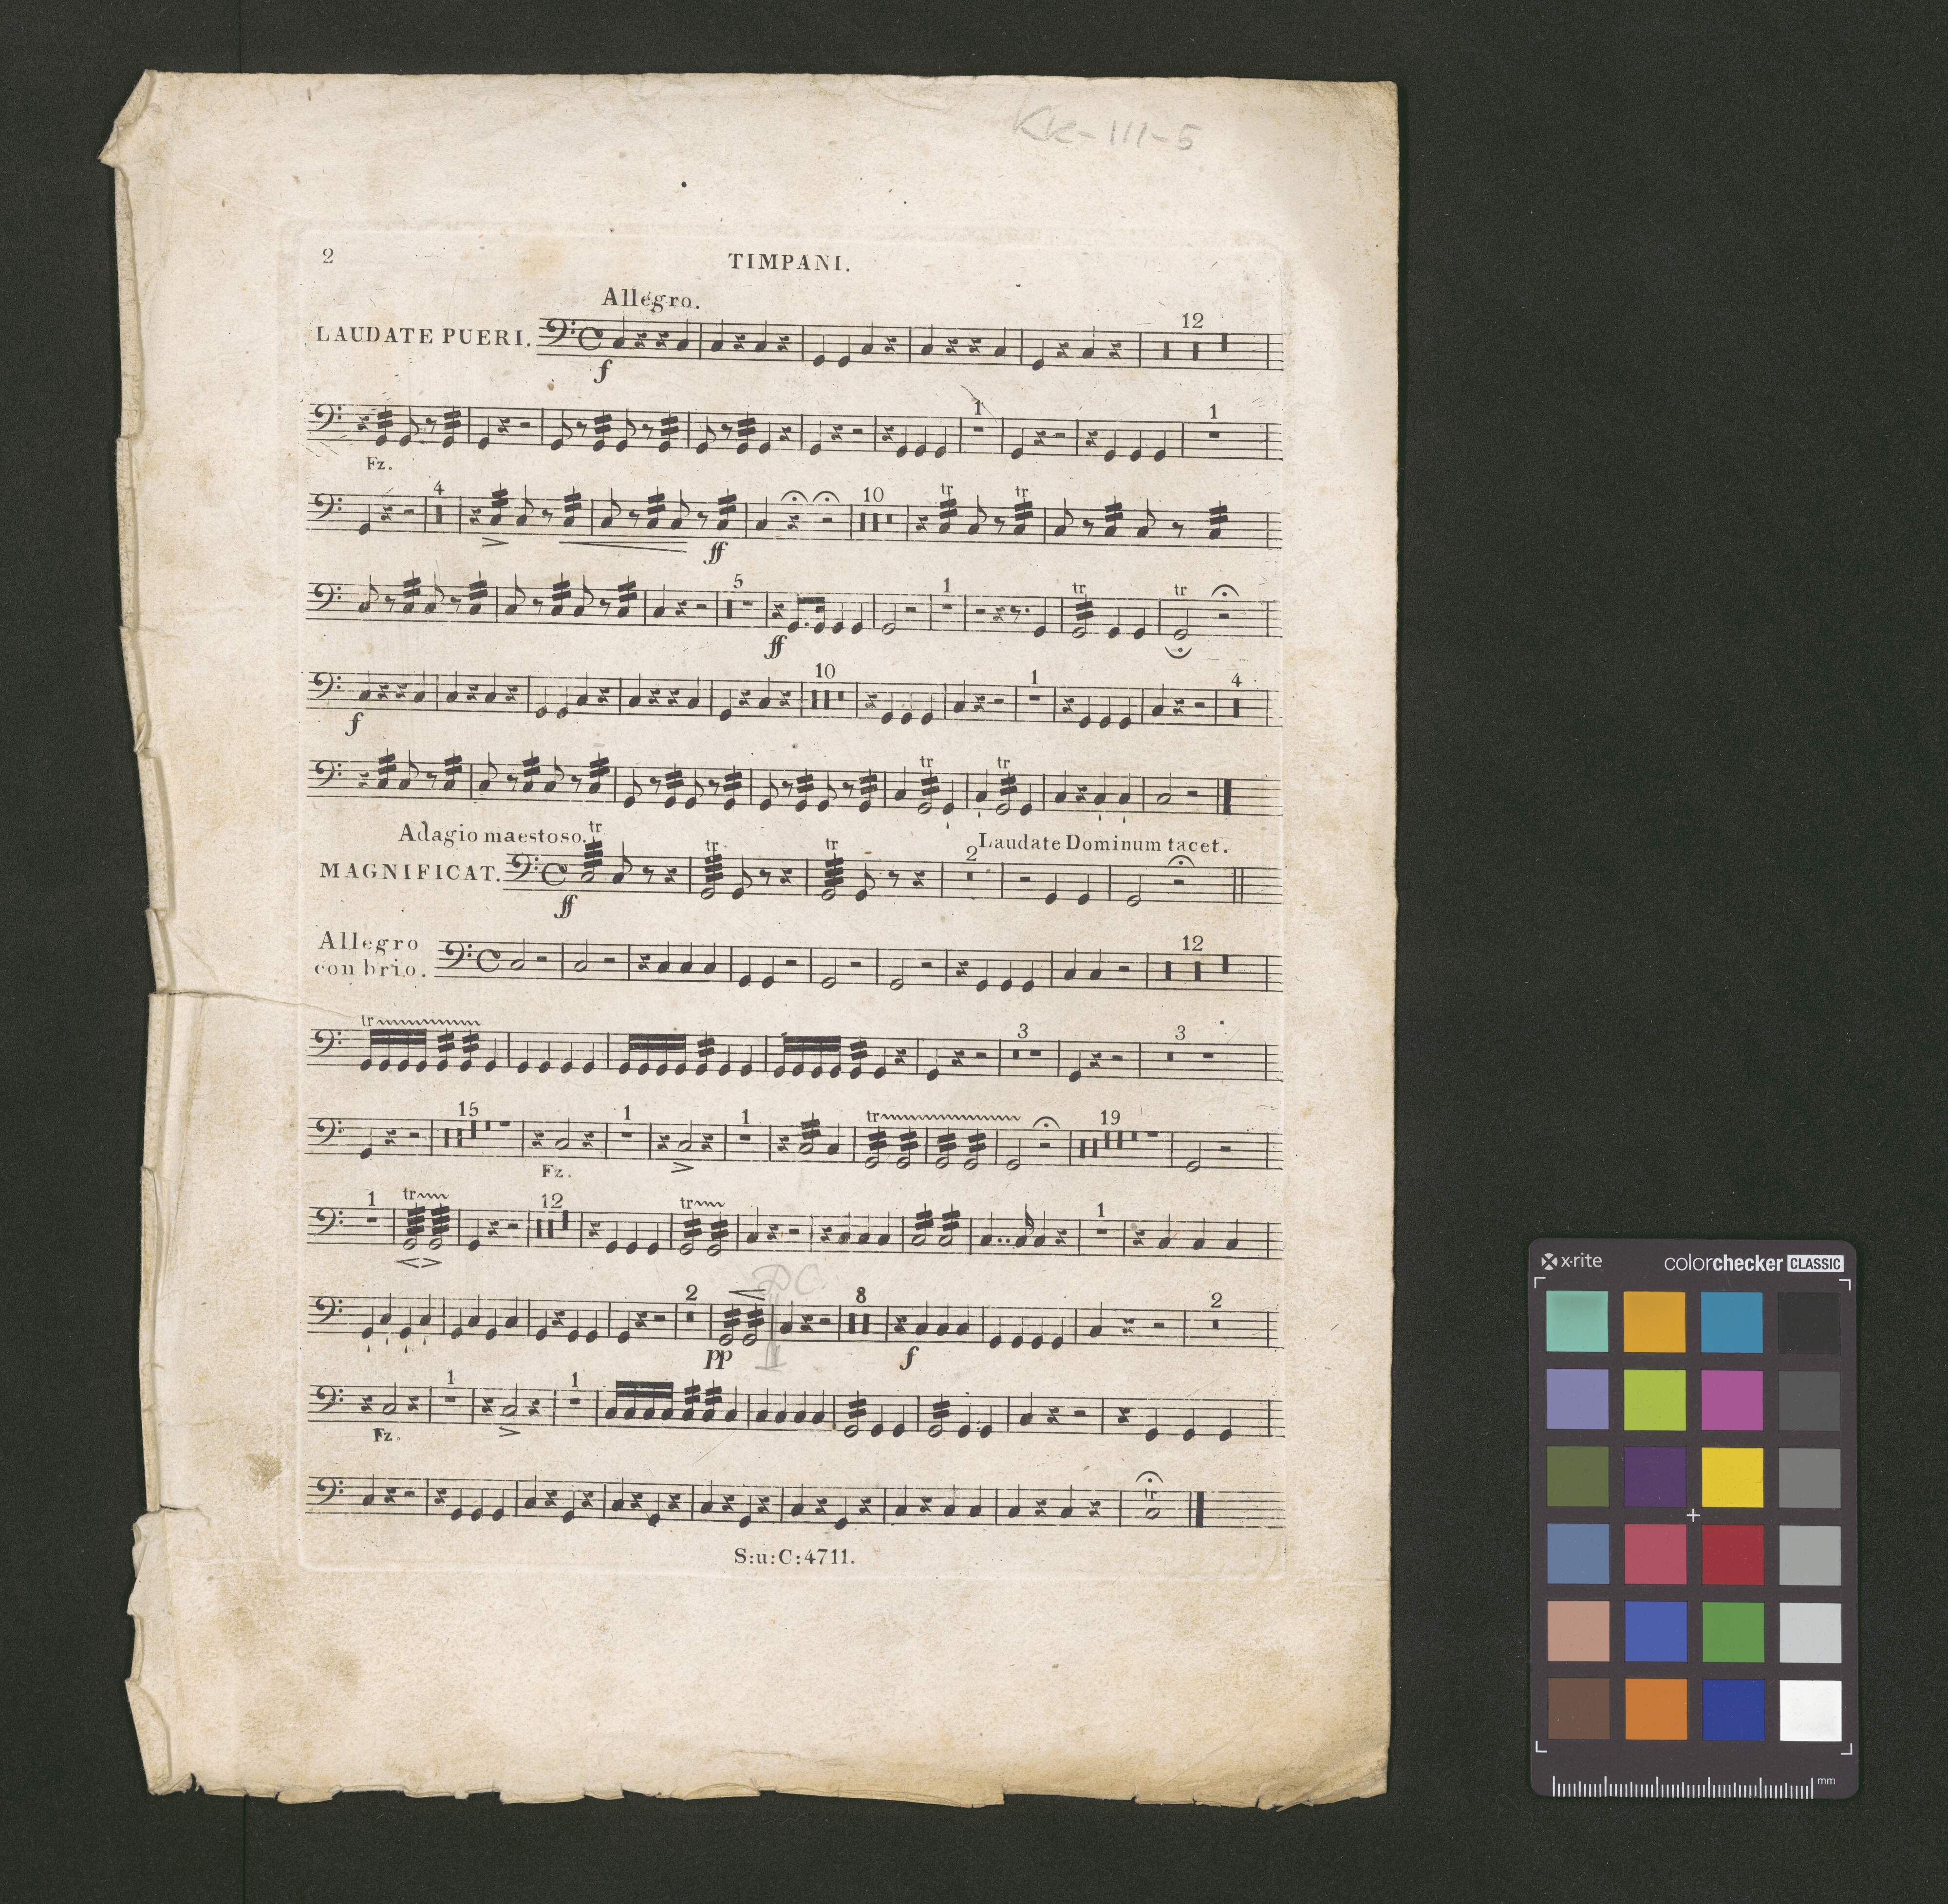 KK-111-5
2
TIMPANI.
Allegro.
LAUDATE PUERI.
f
12
Fz.
1
1
4
ff
10
tr
tr
5
ff
1
tr
tr
f
10
1
4
tr
tr
Adagio maestoso.
Laudate Dominum tacet.
MAGNIFICAT.
tr
ff
tr
tr
2
Allegro
con brio.
12
tr
3
3
15
Fz.
1
1
tr
19
1
tr
12
tr
1
DC
2
pp
8
f
2
Fz.
1
1
tr
S:u:C:4711.
x-rite
colorchecker CLASSIC
mm